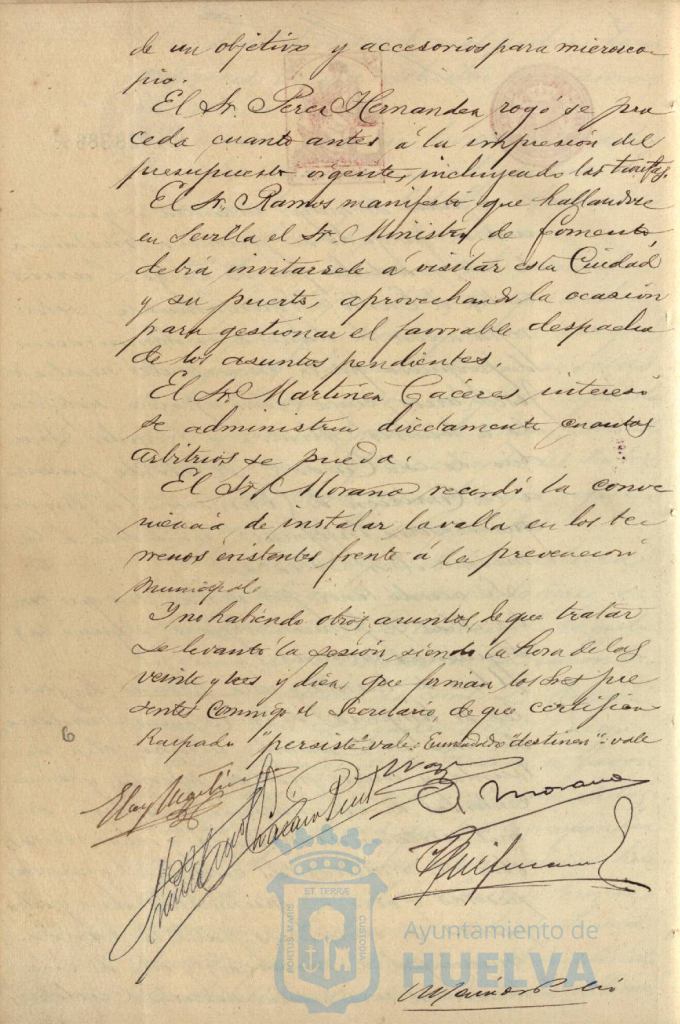 de un objetivo y accesorios para microsco-
pio.
El Sr. Perez Hernandez, rogó se pro
ceda cuanto antes á la impresión del
presupuesto vigente, incluyendo las tarifas.
El Sr. Ramos manifestó que hallandose
en Sevilla el Sr. Ministro de Fomento,
debia invitarsele á visitar esta Ciudad
y su puerto, aprovechando la ocasión
para gestionar el favorable despacho
de los asuntos pendientes.
El Sr. Martinez Caceres interesó
se administren directamente cuantos
arbitrios se pueda.
El Sr. Moraña recordó la conve
niencia de instalar la valla en los te
rrenos existentes frente á la prevención
municipal.
Y no habiendo otros asuntos de que tratar
se levantó la sesión, siendo la hora de las
veinte y tres y diez, que firman los Sres pre
sentes conmigo el Secretario, de que certifico
Raspado "persiste" vale. Enmendado "destinen": vale
6
Eloy Martin
Moraña
PORTUS MARIS
ET TERRÆ
CUSTODIA
Ayuntamiento de
HUELVA